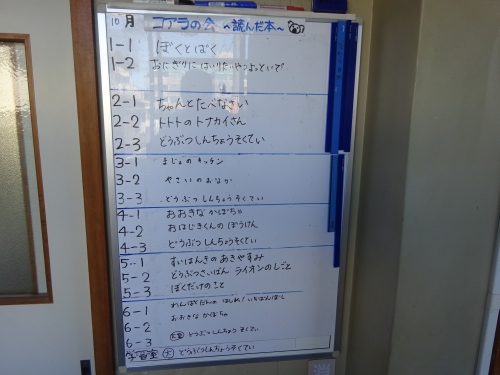 10月 コアラの会 ~読んだ本~
1-1 ぼくとばく
1-2 おにぎりに はいりたいやつ よっといで
2-1 ちゃんとたべなさい
2-2 トトトのトナカイさん
2-3 どうぶつしんちょうそくてい
3-1 まじょのキッチン
3-2 やさいのおなか
3-3 どうぶつしんちょうそくてい
4-1 おおきなかぼちゃ
4-2 おはじきくんのぼうけん
4-3 どうぶつしんちょうそくてい
5-1 すいはんきのあきやすみ
5-2 どうぶつさいばん ライオンのしごと
5-3 ぼくだけのこと
6-1 わんぱくだんの はしれ!いちばんぼし
6-2 おおきな かぼちゃ
6-3 どうぶつしんちょうそくてい
学習室 大 どうぶつしんちょうそくてい